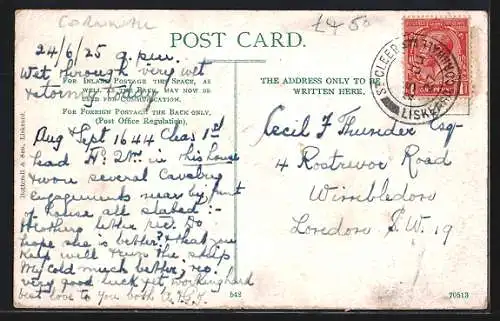 CORNWALL
£4 50
POST CARD.
24/6/25 9. pm.
Wet through very wet
& stormy today
FOR INLAND POSTAGE THE SPACE, AS
WELL AS THE BACK, MAY NOW BE
USED FOR COMMUNICATION.
FOR FOREIGN POSTAGE THE BACK ONLY.
(Post Office Regulation).
Aug & Sept 1644 Chas 1st
head in this house
& won several Cavalry
engagements near by, front
of house all :-
letter Do
hope she is better? & that you
keep well & run the ship
My cold much better,
very good luck yet working hard
best love to you both
THE ADDRESS ONLY TO BE
WRITTEN HERE.
Cecil F Thunder Esq-
4 Rostrevor Road
Wimbledon
London S.W. 19
ST CLEER
LISKEARD
CORNWALL
Liskeard.
542
70513